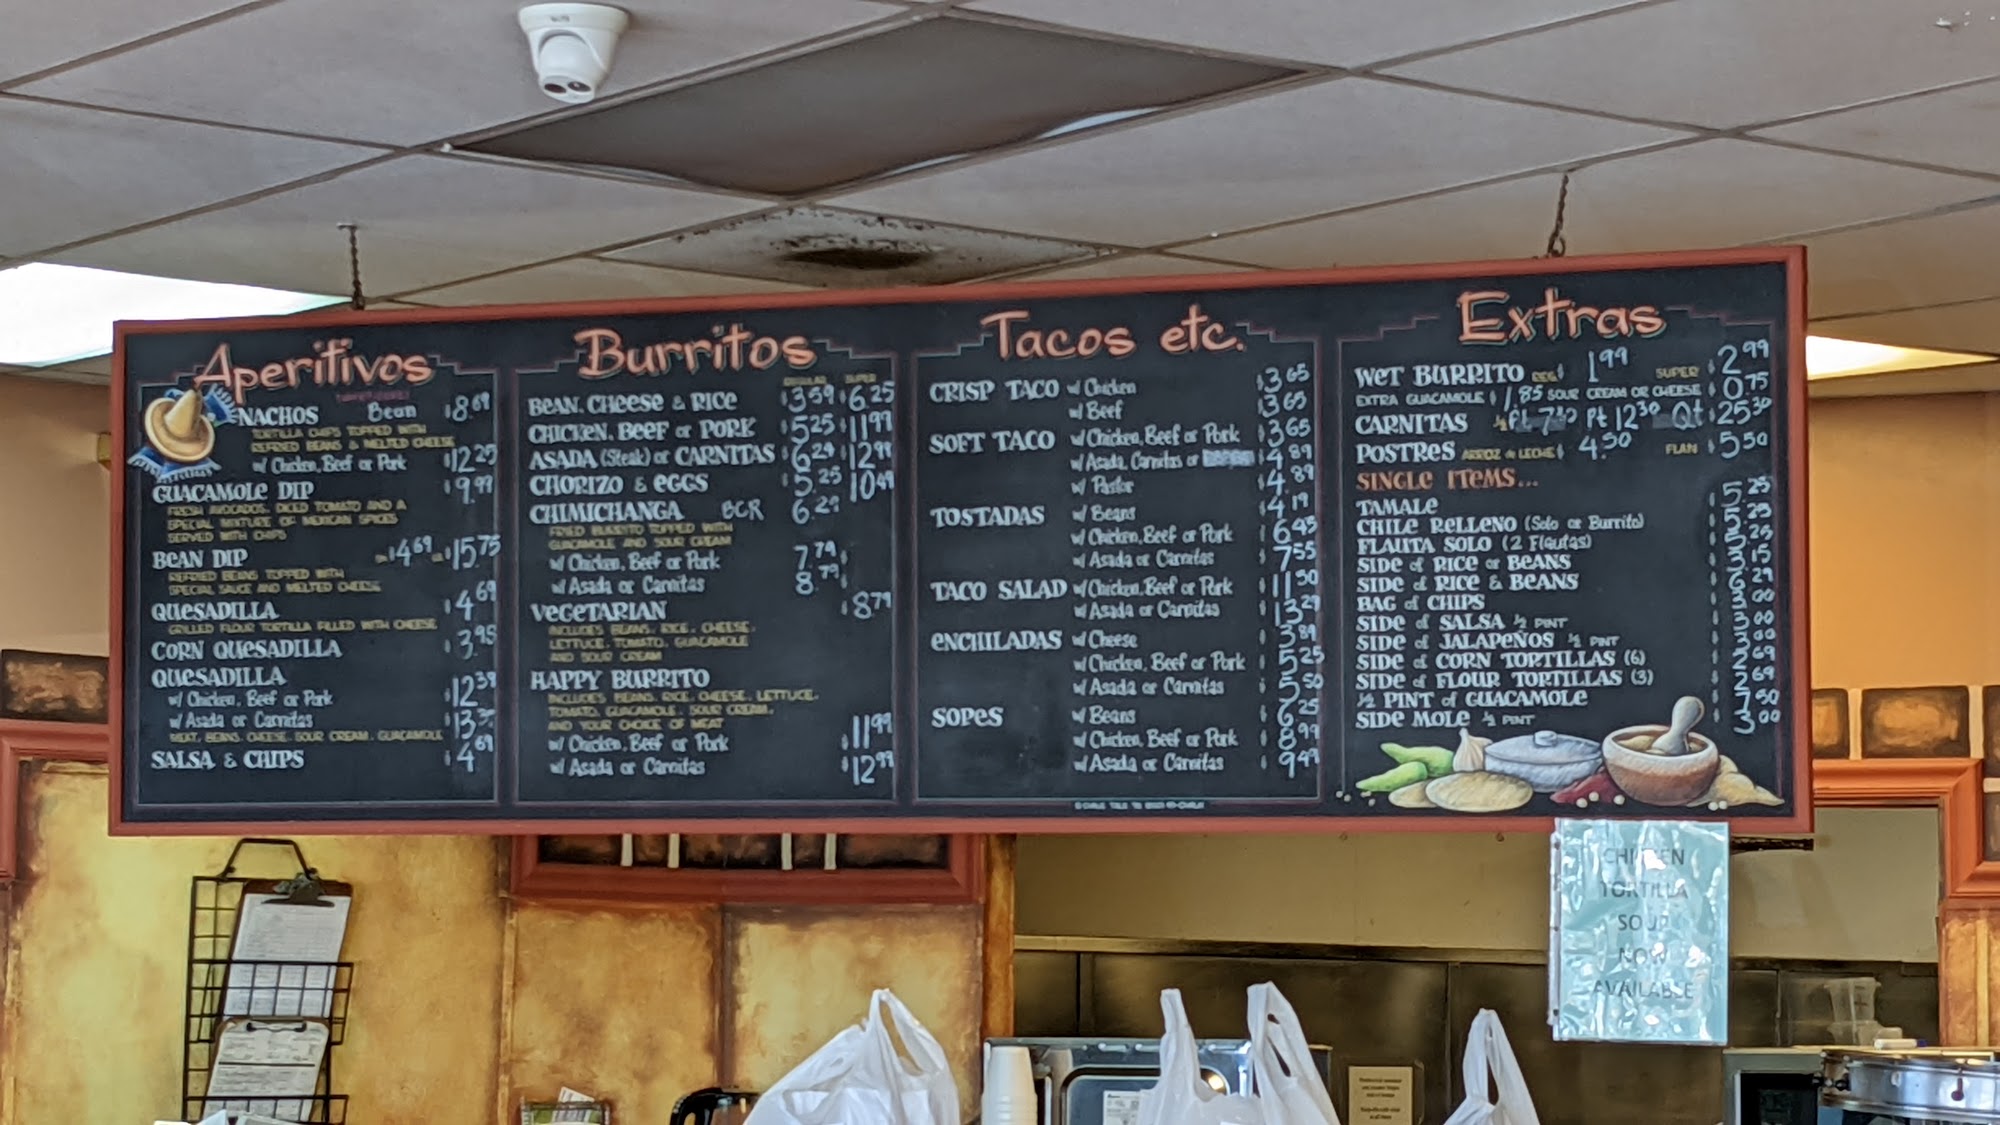 Aperitivos
NACHOS Bean $8.69
TORTILLA CHIPS TOPPED WITH
REFRIED BEANS & MELTED CHEESE
w/ Chicken, Beef or Pork $12.25
GUACAMOLE DIP $9.99
FRESH AVOCADOS, DICED TOMATO AND A
SPECIAL MIXTURE OF MEXICAN SPICES
SERVED WITH CHIPS
BEAN DIP $14.69 $15.75
REFRIED BEANS TOPPED WITH
SPECIAL SAUCE AND MELTED CHEESE
QUESADILLA $4.69
GRILLED FLOUR TORTILLA FILLED WITH CHEESE
CORN QUESADILLA $3.95
QUESADILLA
w/ Chicken, Beef or Pork $12.39
w/ Asada or Carnitas $13.35
MEAT, BEANS, CHEESE, SOUR CREAM, GUACAMOLE
SALSA & CHIPS $4.69
Burritos
REGULAR SUPER
BEAN, CHEESE & RICE $3.59 $6.25
CHICKEN, BEEF or PORK $5.25 $11.99
ASADA (Steak) or CARNITAS $6.29 $12.99
CHORIZO & EGGS $5.25 10.49
CHIMICHANGA BCR 6.29
FRIED BURRITO TOPPED WITH
GUACAMOLE AND SOUR CREAM
w/ Chicken, Beef or Pork 7.79
w/ Asada or Carnitas 8.79
VEGETARIAN $8.79
INCLUDES BEANS, RICE, CHEESE,
LETTUCE, TOMATO, GUACAMOLE
AND SOUR CREAM
HAPPY BURRITO
INCLUDES BEANS, RICE, CHEESE, LETTUCE,
TOMATO, GUACAMOLE, SOUR CREAM,
AND YOUR CHOICE OF MEAT
w/ Chicken, Beef or Pork $11.99
w/ Asada or Carnitas $12.99
Tacos etc.
CRISP TACO w/ Chicken $3.65
w/ Beef $3.65
SOFT TACO w/ Chicken, Beef or Pork $3.65
w/ Asada, Carnitas or $4.89
w/ Pastor $4.89
TOSTADAS w/ Beans $4.19
w/ Chicken, Beef or Pork $6.45
w/ Asada or Carnitas $7.55
TACO SALAD w/ Chicken, Beef or Pork $11.50
w/ Asada or Carnitas $13.29
ENCHILADAS w/ Cheese $3.89
w/ Chicken, Beef or Pork $5.25
w/ Asada or Carnitas $5.50
SOPES w/ Beans $6.25
w/ Chicken, Beef or Pork $8.99
w/ Asada or Carnitas $9.49
Extras
WET BURRITO REG. $1.99 SUPER $2.99
EXTRA GUACAMOLE $1.85 SOUR CREAM OR CHEESE $0.75
CARNITAS ½ Pt 7.30 Pt 12.30 Qt $25.30
POSTRES ARROZ de LECHE $4.50 FLAN $5.50
SINGLE ITEMS...
TAMALE $5.25
CHILE RELLENO (Solo or Burrito) $5.25
FLAUTA SOLO (2 Flautas) $5.25
SIDE of RICE or BEANS $3.15
SIDE of RICE & BEANS $6.29
BAG of CHIPS $3.00
SIDE of SALSA ½ PINT $3.00
SIDE of JALAPEÑOS ½ PINT $3.00
SIDE of CORN TORTILLAS (6) $2.69
SIDE of FLOUR TORTILLAS (3) $2.69
½ PINT of GUACAMOLE $7.50
SIDE MOLE ½ PINT $3.00
CHICKEN
TORTILLA
SOUP
NOW
AVAILABLE